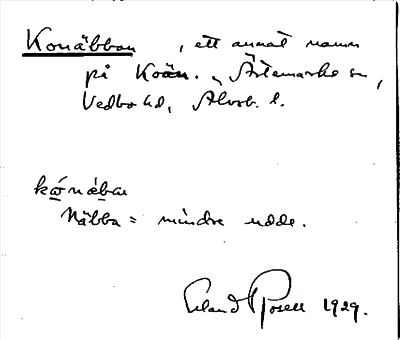 Konäbban, ett annat namn
på Koön. Ärtemarks sn,
Vedbo hd, Älvsb. l.
kónäban
Näbba = mindre udde.
Erland Rosell 1929.